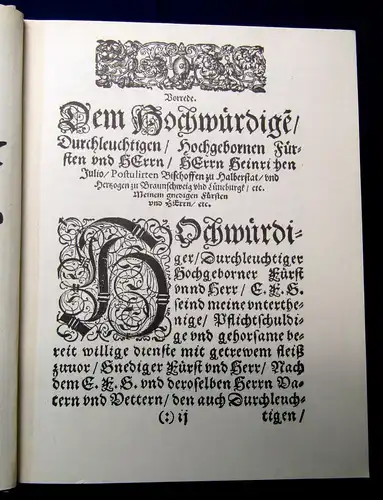 Vorrede.
Dem Hochwürdigē/
Durchleuchtigen / Hochgebornen Für-
sten vnd HErrn / HErrn Heinrichen
Julio / Postulirten Bischoffen zu Halberstat / vnd
Hertzogen zu Braunschweig vnd Lüneburgk / etc.
Meinem gnedigen Fürsten
vnd HErrn / etc.
HOchwürdi-
ger / Durchleuchtiger
Hochgeborner Fürst
vnnd Herr / E. F. G.
seind meine vnterthe-
nige / Pflichtschuldi-
ge vnd gehorsame be-
reit willige dienste mit getrewem fleiß
zuuor / Gnediger Fürst vnd Herr / Nach
dem E. F. G. vnd deroselben Herrn Va-
tern vnd Vettern / den auch Durchleuch-
(:) ij tigen /